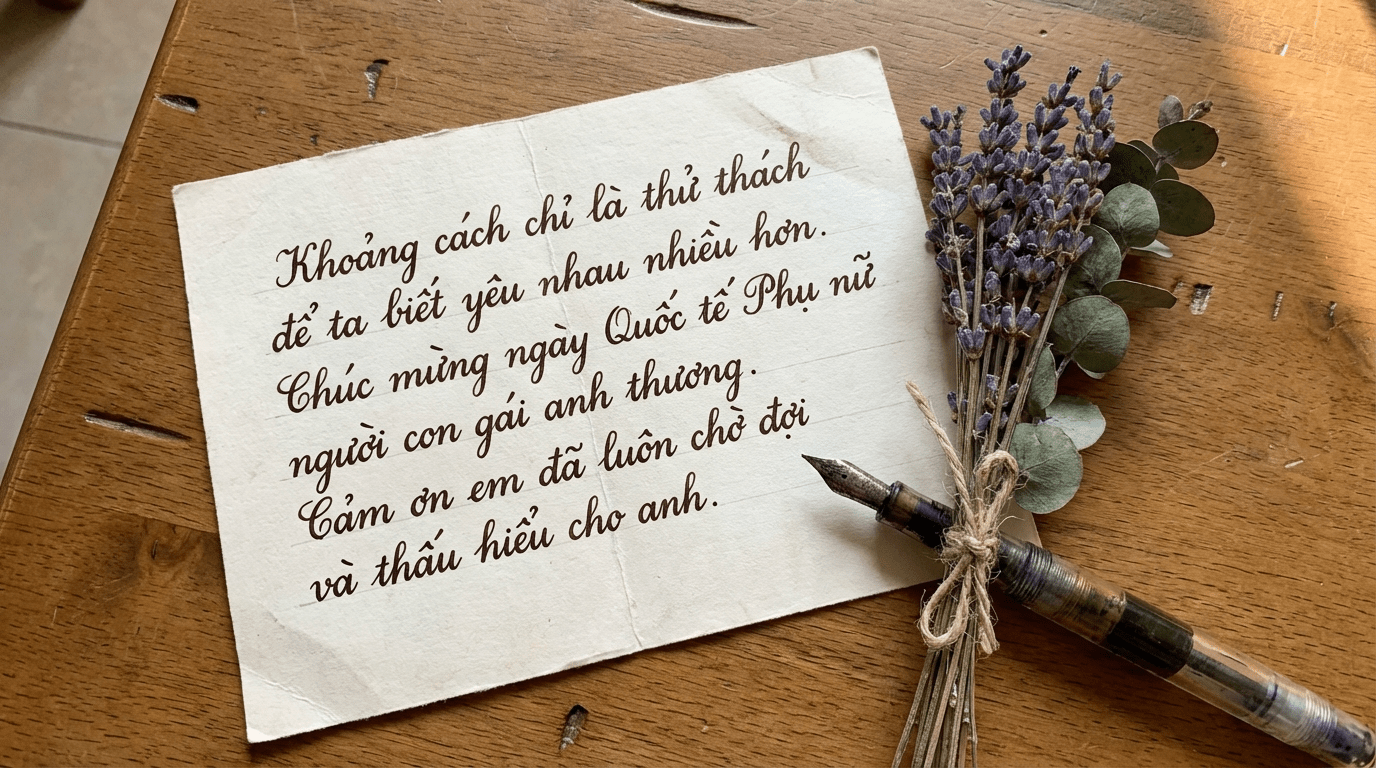 Khoảng cách chỉ là thử thách
để ta biết yêu nhau nhiều hơn.
Chúc mừng ngày Quốc tế Phụ nữ
người con gái anh thương.
Cảm ơn em đã luôn chờ đợi
và thấu hiểu cho anh.